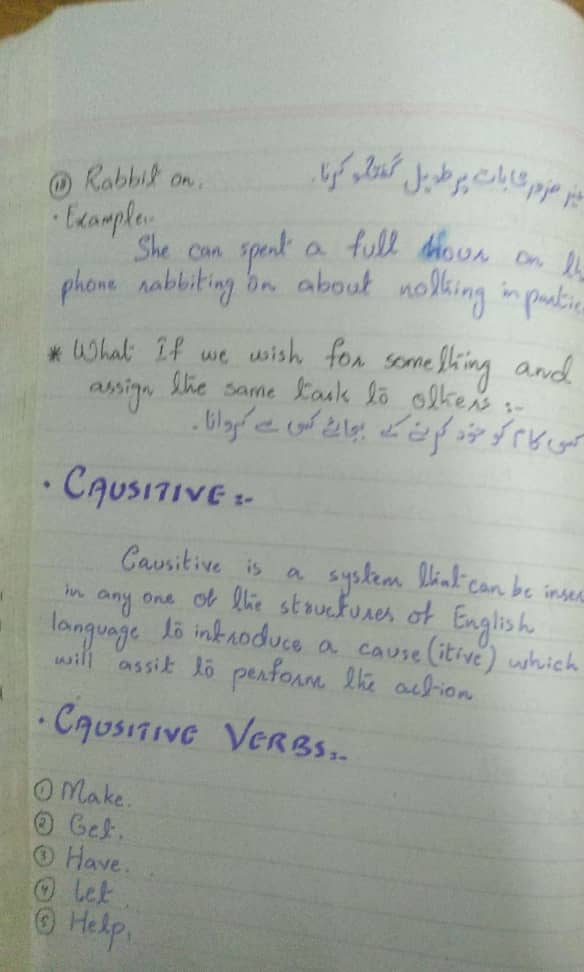 ⑩ Rabbit on. غیر ضروری بات پر طویل گفتگو کرنا.
· Example:-
She can spent a full hour on
phone rabbiting on about nothing in
* What If we wish for something and
assign the same task to others :-
کسی کام کو خود کرنے کے بجائے کسی سے کروانا.
· CAUSITIVE :-
Causitive is a system that can be
in any one of the structures of English
language to introduce a cause (itive) which
will assit to perform the action
· CAUSITIVE VERBS:-
① Make.
② Get.
③ Have.
④ Let.
⑤ Help.